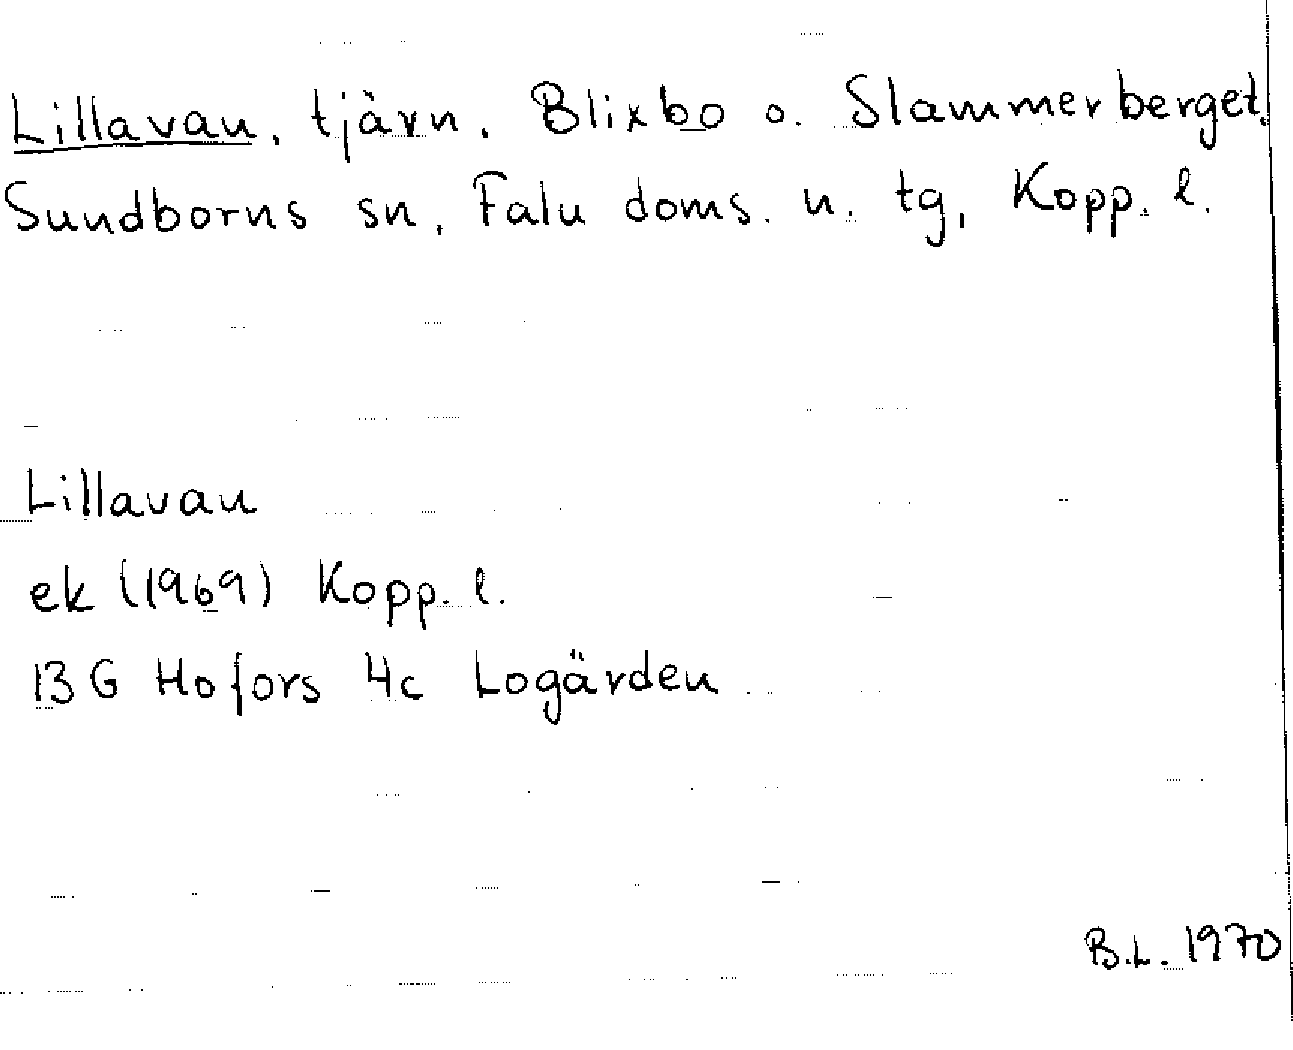 Lillavan, tjärn, Blixbo o. Slammerberget,
Sundborns sn, Falu doms. n. tg, Kopp. l.
Lillavan
ek (1969) Kopp. l.
13 G Hofors 4c Logärden
B.L. 1970